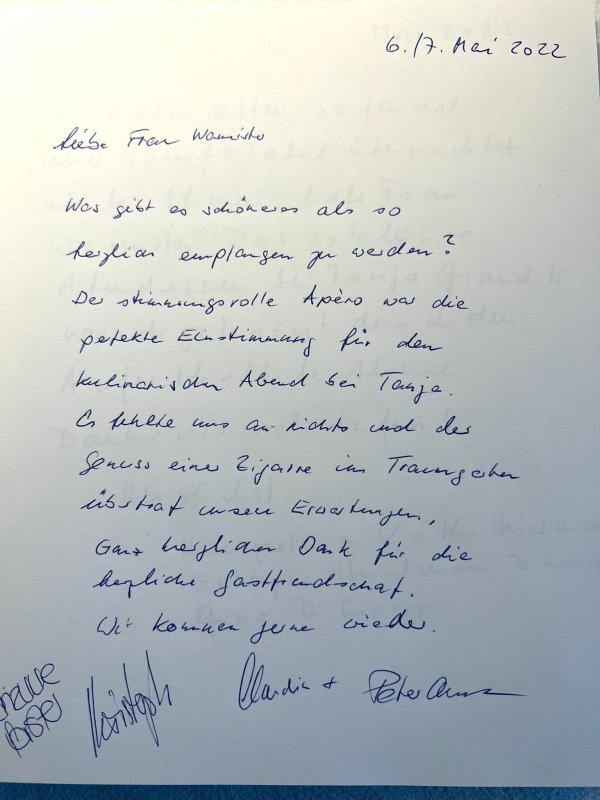 6./7. Mai 2022
Liebe Frau
Was gibt es schöneres als so
herzlich empfangen zu werden?
Der stimmungsvolle Apèro war die
perfekte Einstimmung für den
kulinarischen Abend bei Tanja.
Es fehlte uns an nichts und der
Genuss einer Zigarre im Traumgarten
übertraf unsere Erwartungen,
Ganz herzlichen Dank für die
herzliche Gastfreundschaft.
Wir kommen gerne wieder.
Christoph Claudia + Peter